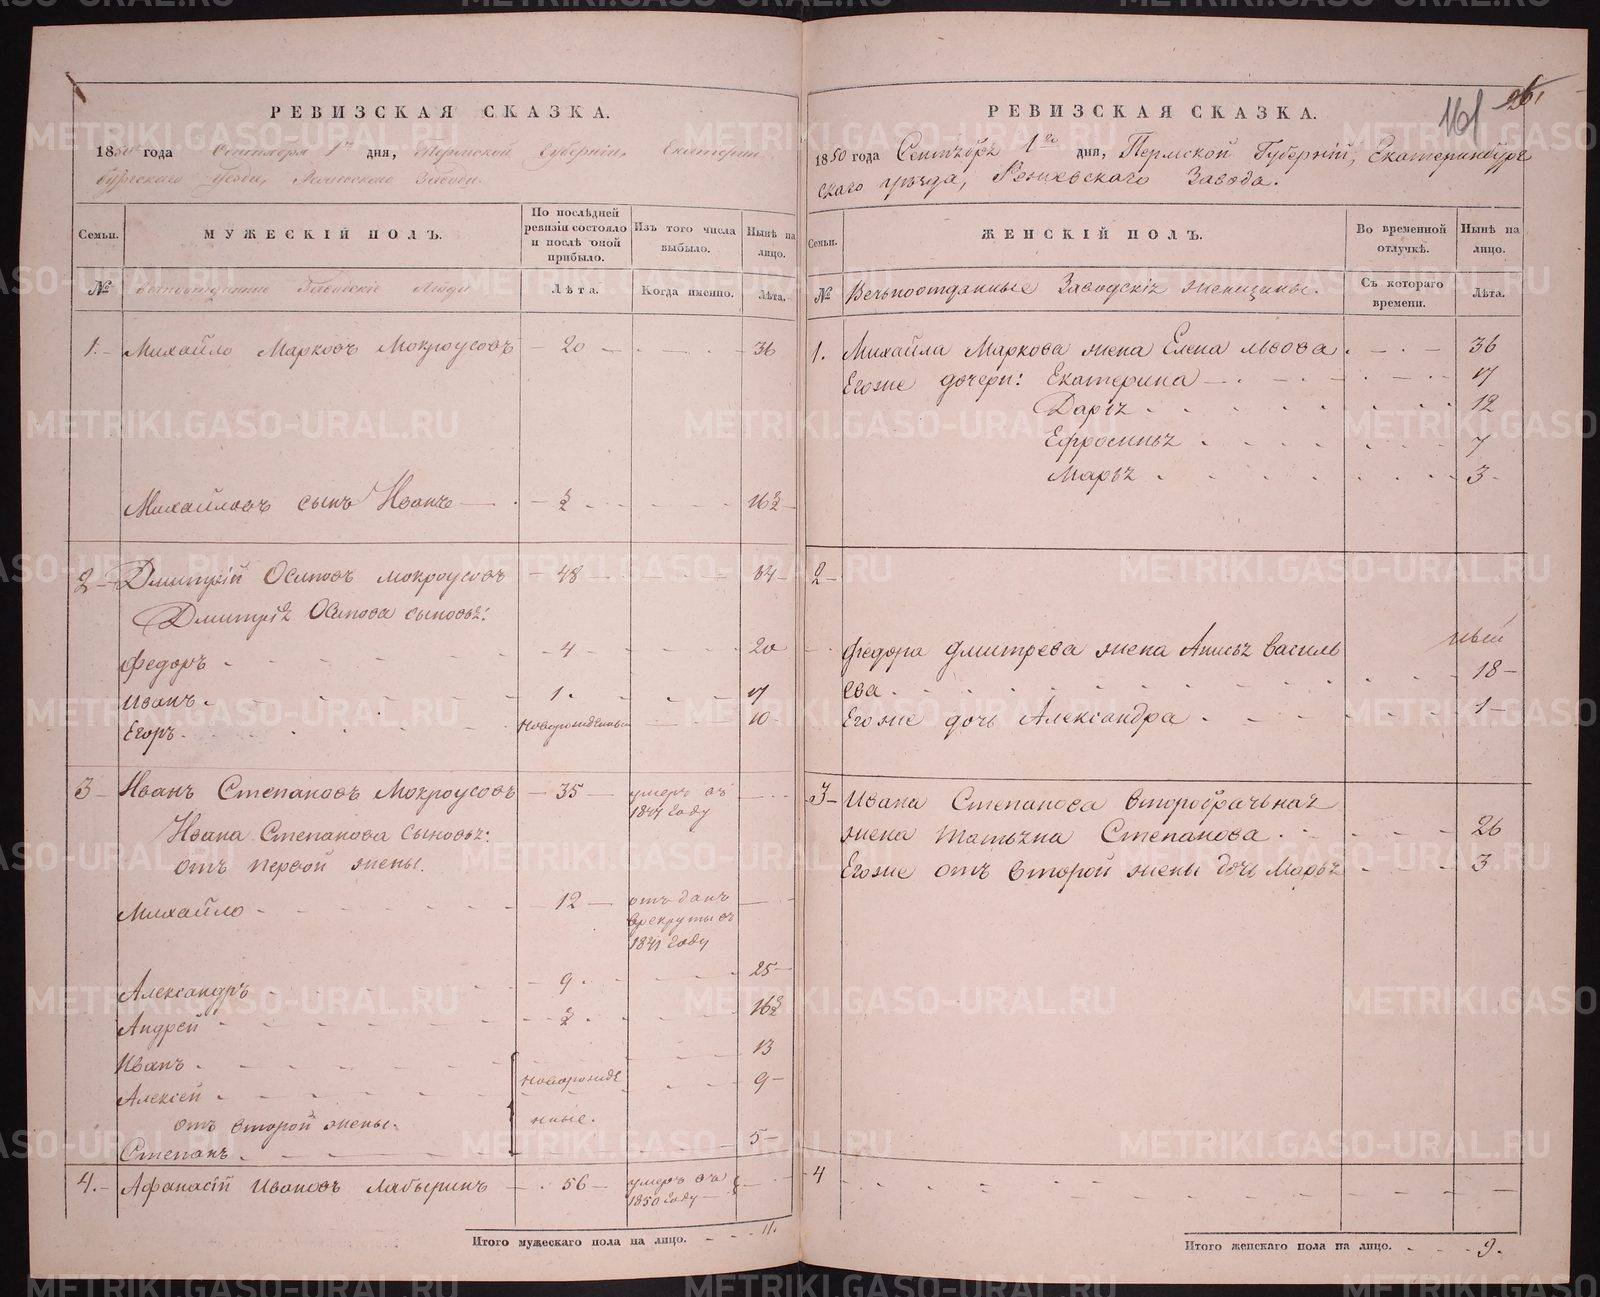 РЕВИЗСКАЯ СКАЗКА.
1850 года Сентября 1го дня, Пермской Губерніи, Екатерин
бургскаго уезда, Завода.
Семьи.
МУЖЕСКІЙ ПОЛЪ.
По послѣдней ревизіи состояло и послѣ оной прибыло.
Изъ того числа выбыло.
Нынѣ на лицо.
№
Вечноотданные Заводскіе Люди
Лѣта.
Когда именно.
Лѣта.
1. Михайло Марковъ Мокроусовъ 20 36
Михайловъ сынъ Иванъ ½ 16½
2 Дмитрій Осиповъ Мокроусовъ 48 64
Дмитрія Осипова сыновья:
Федоръ 4 20
Иванъ 1 17
Егоръ Новорожденный 10
3 Иванъ Степановъ Мокроусовъ 35 умеръ въ
1847 году
Ивана Степанова сыновья:
отъ первой жены.
Михайло 12 отъданъ
врекруты въ
1841 году
Александръ 9 25
Андрей ½ 16½
Иванъ 13
Алексей новорожде 9
отъ второй жены. нные.
Степанъ 5
4. Афанасій Ивановъ Лабыринъ 56 умеръ въ
1850 году
Итого мужескаго пола на лицо. 11.
161
РЕВИЗСКАЯ СКАЗКА.
1850 года Сентября 1го дня, Пермской Губерній, Екатеринбург
скаго уѣзда, Режевскаго Завода.
Семьи.
ЖЕНСКІЙ ПОЛЪ.
Во временной отлучкѣ.
Нынѣ на лицо.
№
Вечьноотданные Заводскія женщины.
Съ котораго времени.
Лѣта.
1. Михайла Маркова жена Елена Львова 36
Егоже дочери: Екатерина 17
Дарья 12
Ефросинья 7
Марья 3
2
Федора Дмитрева жена Анисья Василь
ева 18
Егоже дочь Александра 1
3 Ивана Степанова второбрачьная
жена Татьяна Степанова 26
Егоже отъ второй жены дочь Марья 3
4
Итого женскаго пола на лицо. 9.
METRIKI.GASO-URAL.RU